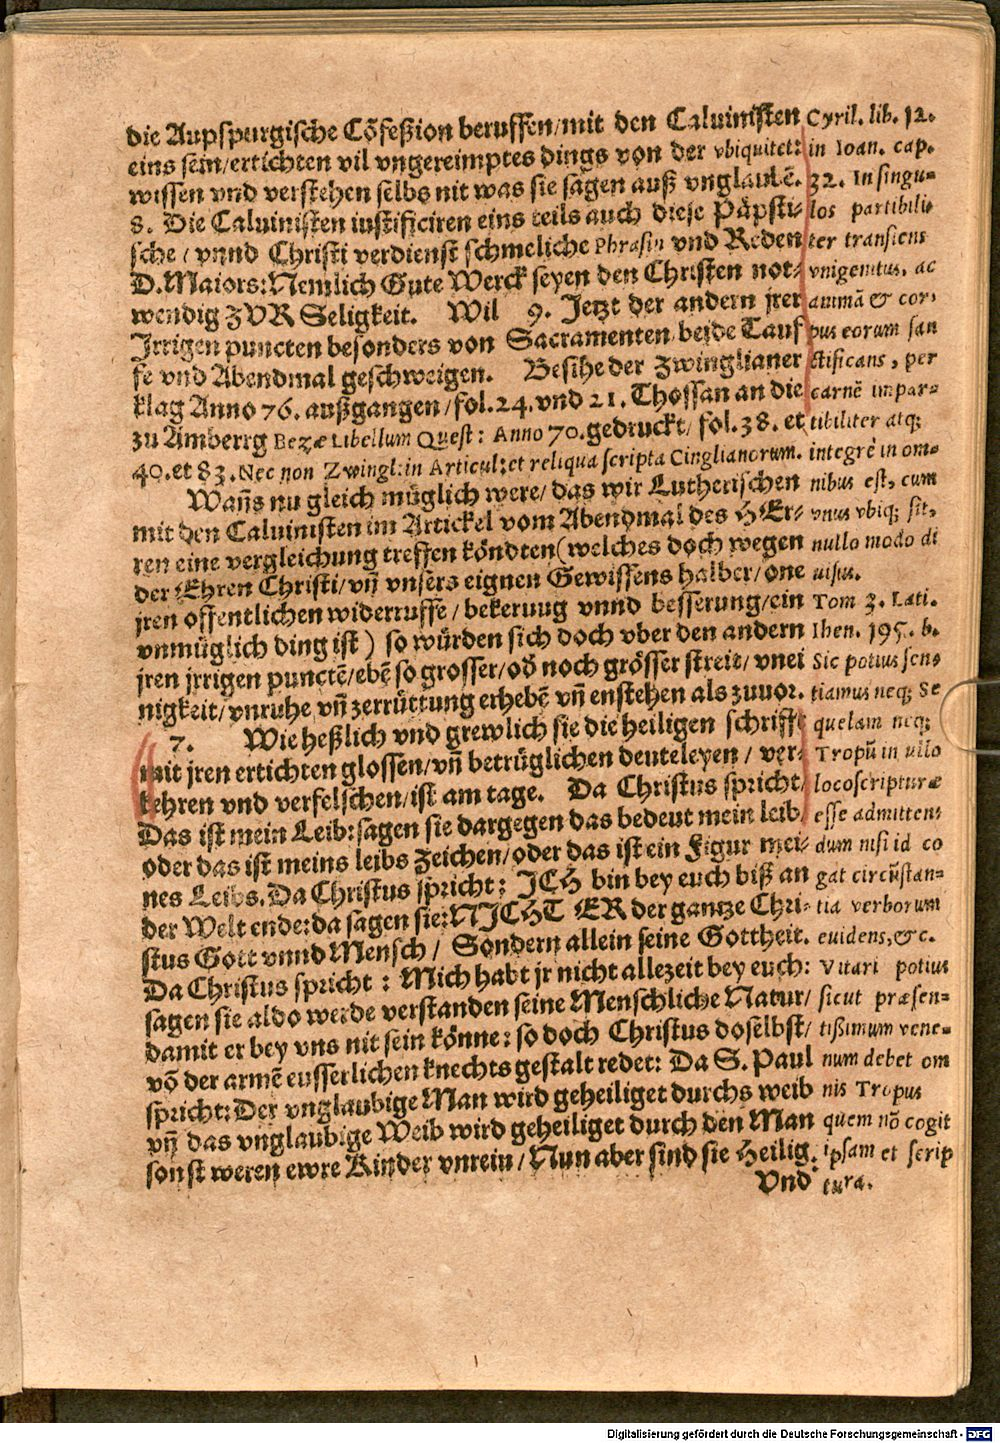 die Aupspurgische Cõfeßion beruffen/mit den Caluinisten
eins sein/ertichten vil vngereimptes dings von der vbiquitet:
wissen vnd verstehen selbs nit was sie sagen auß vnglaubẽ.
8. Die Caluinisten iustificiren eins teils auch diese Päpsti-
sche / vnnd Christi verdienst schmeliche Phrasin vnd Reden
D. Maiors: Nemlich Gute Werck seyen den Christen not-
wendig ZVR Seligkeit. Wil 9. Jetzt der andern jrer
Jrrigen puncten besonders von Sacramenten beide Tauf
fe vnd Abendmal geschweigen. Besihe der Zwinglianer
klag Anno 76. außgangen/fol. 24. vnd 21. Thossan an die
zu Amberrg Bezæ Libellum Quest: Anno 70. gedruckt/ fol. 38. et
40. et 83. Nec non Zwingl: in Articul: et reliqua scripta Cinglianorum.
Wañs nu gleich müglich were/ das wir Lutherischen
mit den Caluinisten im Artickel vom Abendmal des HEr-
ren eine vergleichung treffen köndten (welches doch wegen
der Ehren Christi/ vñ vnsers eignen Gewissens halber/one
jren offentlichen widerruffe / bekerung vnnd besserung/ein
vnmüglich ding ist) so würden sich doch vber den andern
jren jrrigen punctẽ/ebẽ so grosser/oď noch grösser streit/ vnei
nigkeit/vnruhe vñ zerrüttung erhebẽ vñ enstehen als zuuor.
7. Wie heßlich vnd grewlich sie die heiligen schrifft
mit jren ertichten glossen/vñ betrüglichen deuteleyen / ver-
kehren vnd verfelschen/ist am tage. Da Christus spricht/
Das ist mein Leib: sagen sie dargegen das bedeut mein leib/
oder das ist meins leibs Zeichen/oder das ist ein Figur mei-
nes Leibs. Da Christus spricht: JCH bin bey euch biß an
der Welt ende: da sagen sie: NJCHT ER der gantze Chri-
stus Gott vnnd Mensch / Sondern allein seine Gottheit.
Da Christus spricht : Mich habt jr nicht allezeit bey euch:
sagen sie aldo werde verstanden seine Menschliche Natur/
damit er bey vns nit sein könne: so doch Christus doselbst/
võ der armẽ eusserlichen knechts gestalt redet: Da S. Paul
spricht: Der vnglaubige Man wird geheiliget durchs weib
vñ das vnglaubige Weib wird geheiliget durch den Man
sonst weren ewre Kinder vnrein / Nun aber sind sie Heilig.
Vnd
Cyril. lib. 12.
in Ioan. cap.
32. In singu-
los partibili-
ter transiens
vnigenitus, ac
animã & cor-
pus eorum san
ctificans, per
carnẽ impar-
tibiliter atq;
integrè in om-
nibus est, cum
vnus vbiq; sit,
nullo modo di
uisus.
Tom 3. Lati.
Ihen. 195. b.
Sic potius sen-
tiamus neq; Se
quelam neq;
Tropũ in ullo
loco scripturæ
esse admitten-
dum nisi id co
gat circũstan-
tia verborum
euidens, &c.
Vitari potius
sicut præsen-
tißimum vene-
num debet om
nis Tropus
quem nõ cogit
ipsam et scrip
tura.
Digitalisierung gefördert durch die Deutsche Forschungsgemeinschaft - DFG